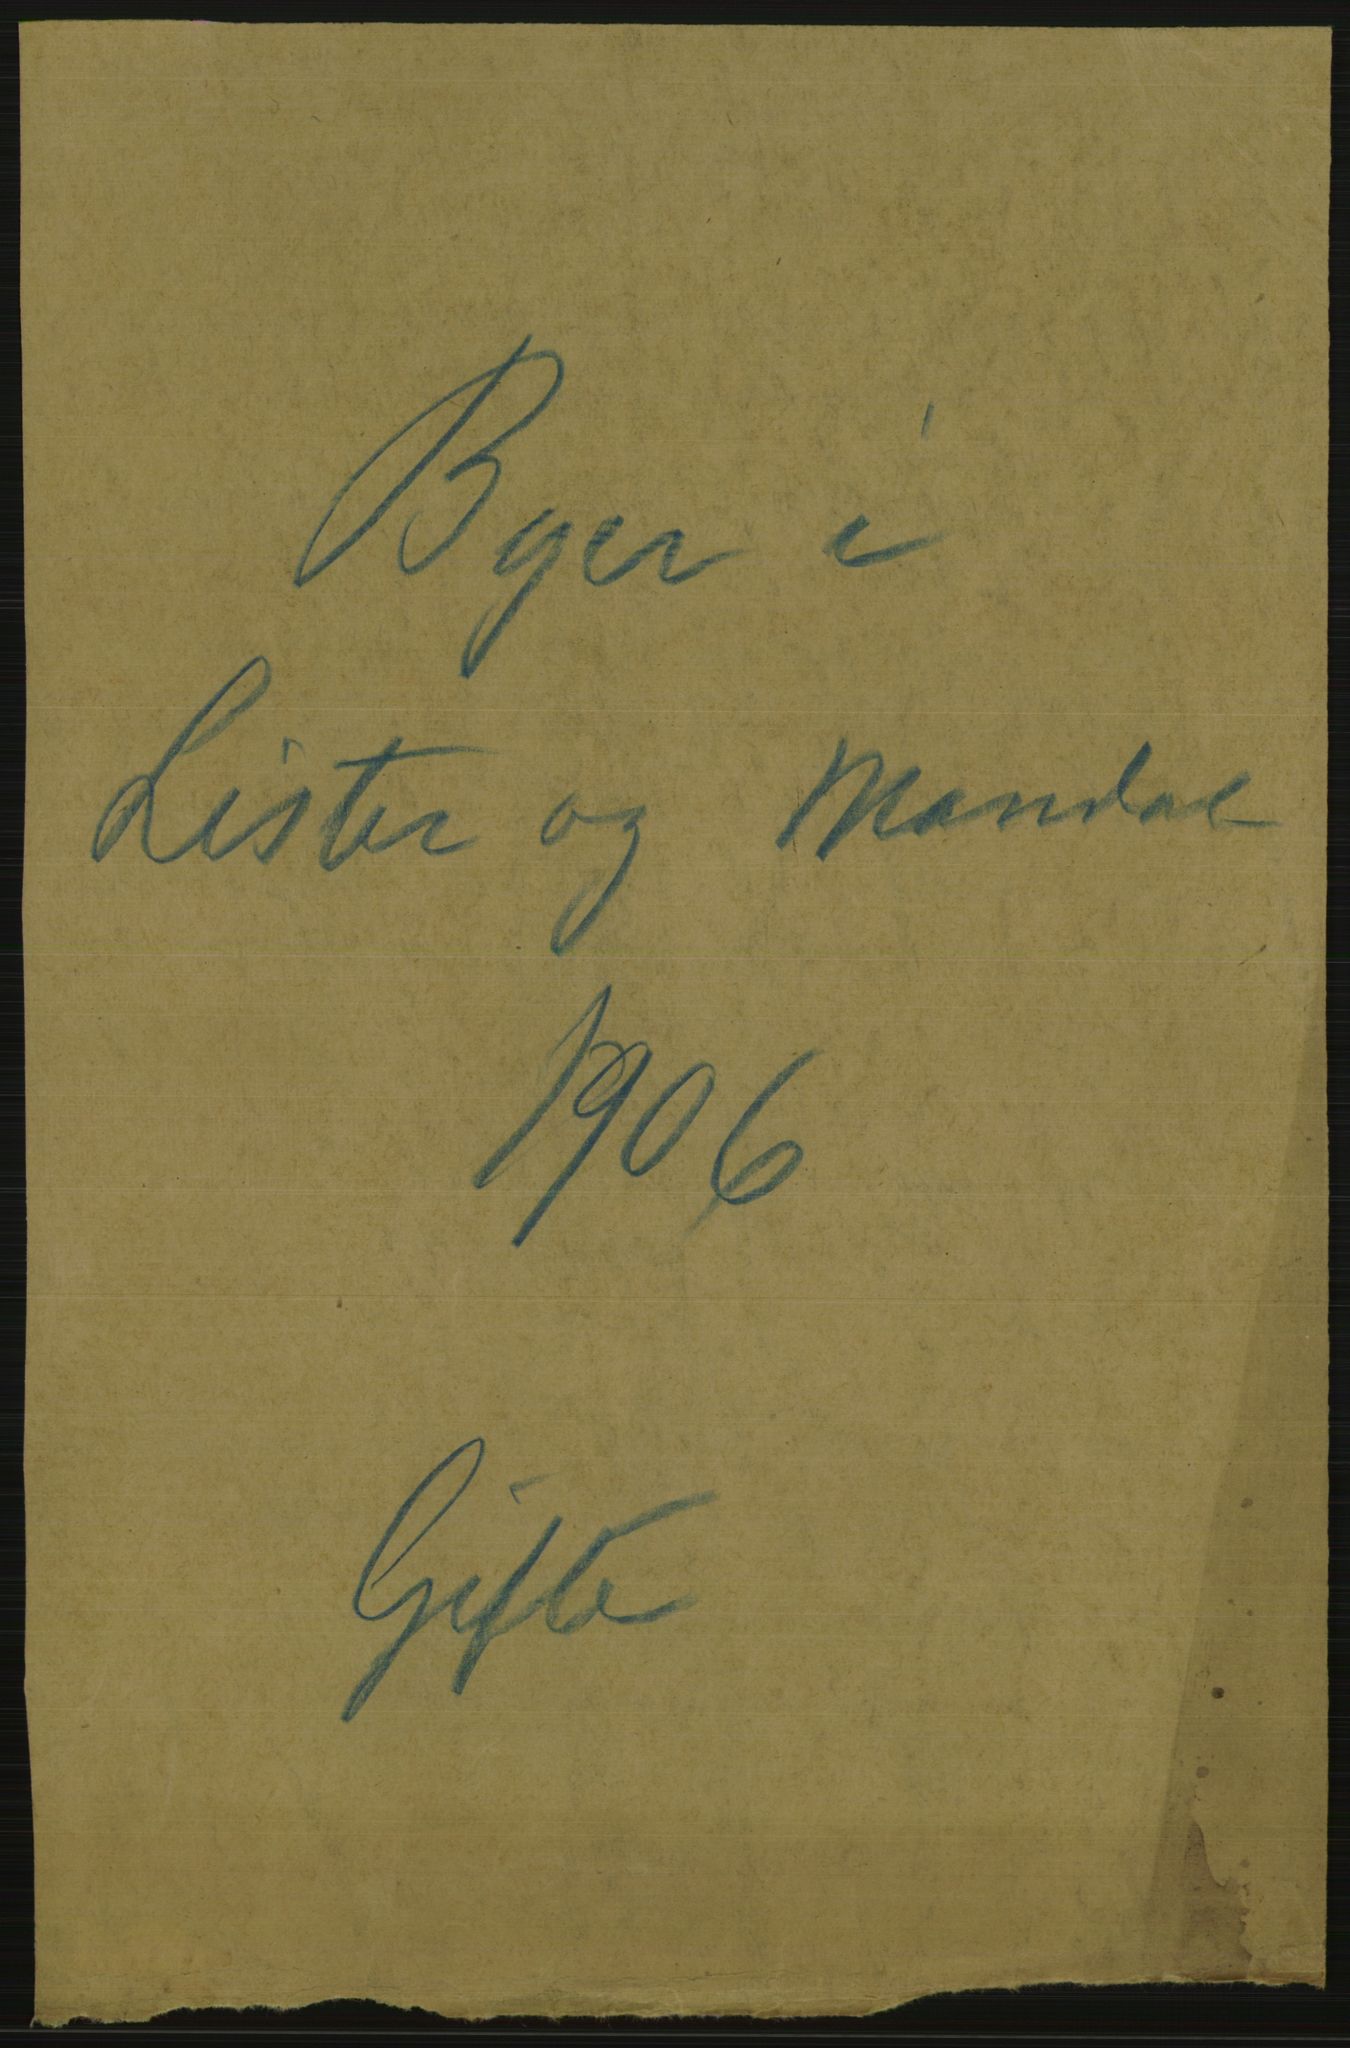 Byer i
Lister og Mandal
1906
Gifte